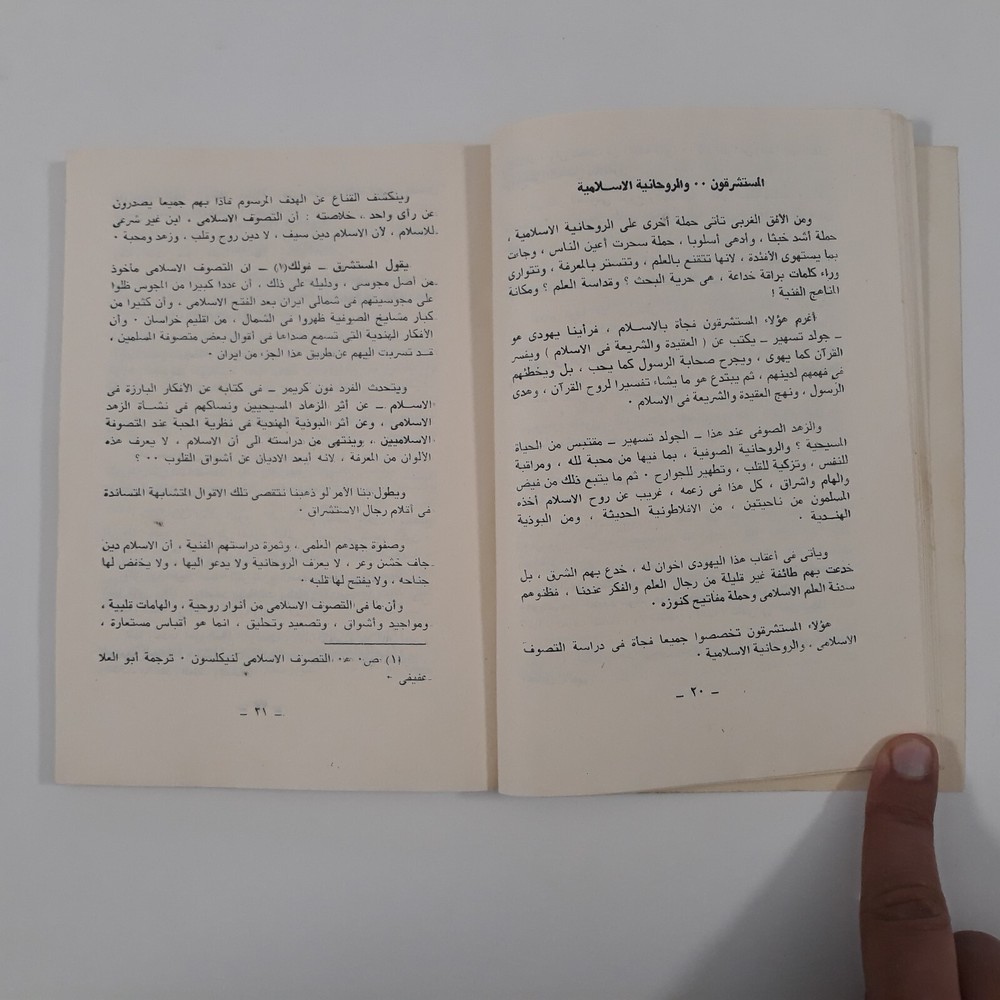 المستشرقون ٠٠ والروحانية الاسلامية
ومن الأفق الغربى تأتى حملة أخرى على الروحانية الاسلامية ،
حملة أشد خبثا ، وأدهى أسلوبا ، حملة سحرت أعين الناس ، وجاءت
بما يستهوى الأفئدة ، لأنها تتقنع بالعلم ، وتتستر بالمعرفة ، وتتوارى
وراء كلمات براقة خداعة ، هى حرية البحث ؟ وقداسة العلم ؟ ومكانة
المناهج الفنية !
أغرم هؤلاء المستشرقون فجأة بالاسلام ، فرأينا يهودى هو
ـ جولد تسهير ـ يكتب عن ( العقيدة والشريعة فى الاسلام ) ويفسر
القرآن كما يهوى ، ويجرح صحابة الرسول كما يحب ، بل ويخطئهم
فى فهمهم لدينهم ، ثم يبتدع هو ما يشاء تفسيرا لروح القرآن ، وهدى
الرسول ، ونهج العقيدة والشريعة فى الاسلام ٠
والزهد الصوفى عند هذا ـ الجولد تسهير ـ مقتبس من الحياة
المسيحية ؟ والروحانية الصوفية ، بما فيها من محبة لله ، ومراقبة
للنفس ، وتزكية للقلب ، وتطهير للجوارح ٠ ثم ما يتبع ذلك من فيض
والهام واشراق ، كل هذا فى زعمه ، غريب عن روح الاسلام أخذه
المسلمون من ناحيتين ، من الافلاطونية الحديثة ، ومن البوذية
الهندية ٠
ويأتى فى أعقاب هذا اليهودى اخوان له ، خدع بهم الشرق ، بل
خدعت بهم طائفة غير قليلة من رجال العلم والفكر عندنا ، فظنوهم
سدنة العلم الاسلامى وحملة مفاتيح كنوزه ٠
هؤلاء المستشرقون تخصصوا جميعا فجأة فى دراسة التصوف
الاسلامى ٠ والروحانية الاسلامية ٠
ـ ٢٠ ـ
وينكشف القناع عن الهدف المرسوم فاذا بهم جميعا يصدرون
عن رأى واحد ، خلاصته : أن التصوف الاسلامى ، ابن غير شرعى
للاسلام ، لأن الاسلام دين سيف ، لا دين روح وقلب ، وزهد ومحبة ٠
يقول المستشرق ـ فولك(١) ـ ان التصوف الاسلامى مأخوذ
من أصل مجوسى ، ودليله على ذلك ، أن عددا كبيرا من المجوس ظلوا
على مجوسيتهم فى شمالى ايران بعد الفتح الاسلامى ، وأن كثيرا من
كبار مشايخ الصوفية ظهروا فى الشمال ، من اقليم خراسان ٠ وأن
الأفكار الهندية التى تسمع صداها فى أقوال بعض متصوفة المسلمين ،
قد تسربت اليهم عن طريق هذا الجزء من ايران ٠
ويتحدث الفرد فون كريمر ـ فى كتابه عن الأفكار البارزة فى
الاسلام ـ عن أثر الزهاد المسيحيين ونساكهم فى نشأة الزهد
الاسلامى ، وعن أثر البوذية الهندية فى نظرية المحبة عند المتصوفة
الاسلاميين ، وينتهى من دراسته الى أن الاسلام ، لا يعرف هذه
الألوان من المعرفة ، لأنه أبعد الاديان عن أشواق القلوب ٠٠ ؟
ويطول بنا الأمر لو ذهبنا نتقصى تلك الاقوال المتشابهة المتساندة
فى أقلام رجال الاستشراق ٠
وصفوة جهدهم العلمى ، وثمرة دراستهم الفنية ، أن الاسلام دين
جاف خشن وعر ، لا يعرف الروحانية ولا يدعو اليها ، ولا يخفض لها
جناحه ، ولا يفتح لها قلبه ٠
وأن ما فى التصوف الاسلامى من أنوار روحية ، والهامات قلبية ،
ومواجيد وأشواق ، وتصعيد وتحليق ، انما هو أقباس مستعارة ،
(١) ص٠ ه٠ التصوف الاسلامى لنيكلسون ٠ ترجمة أبو العلا
عفيفى ٠
ـ ٢١ ـ